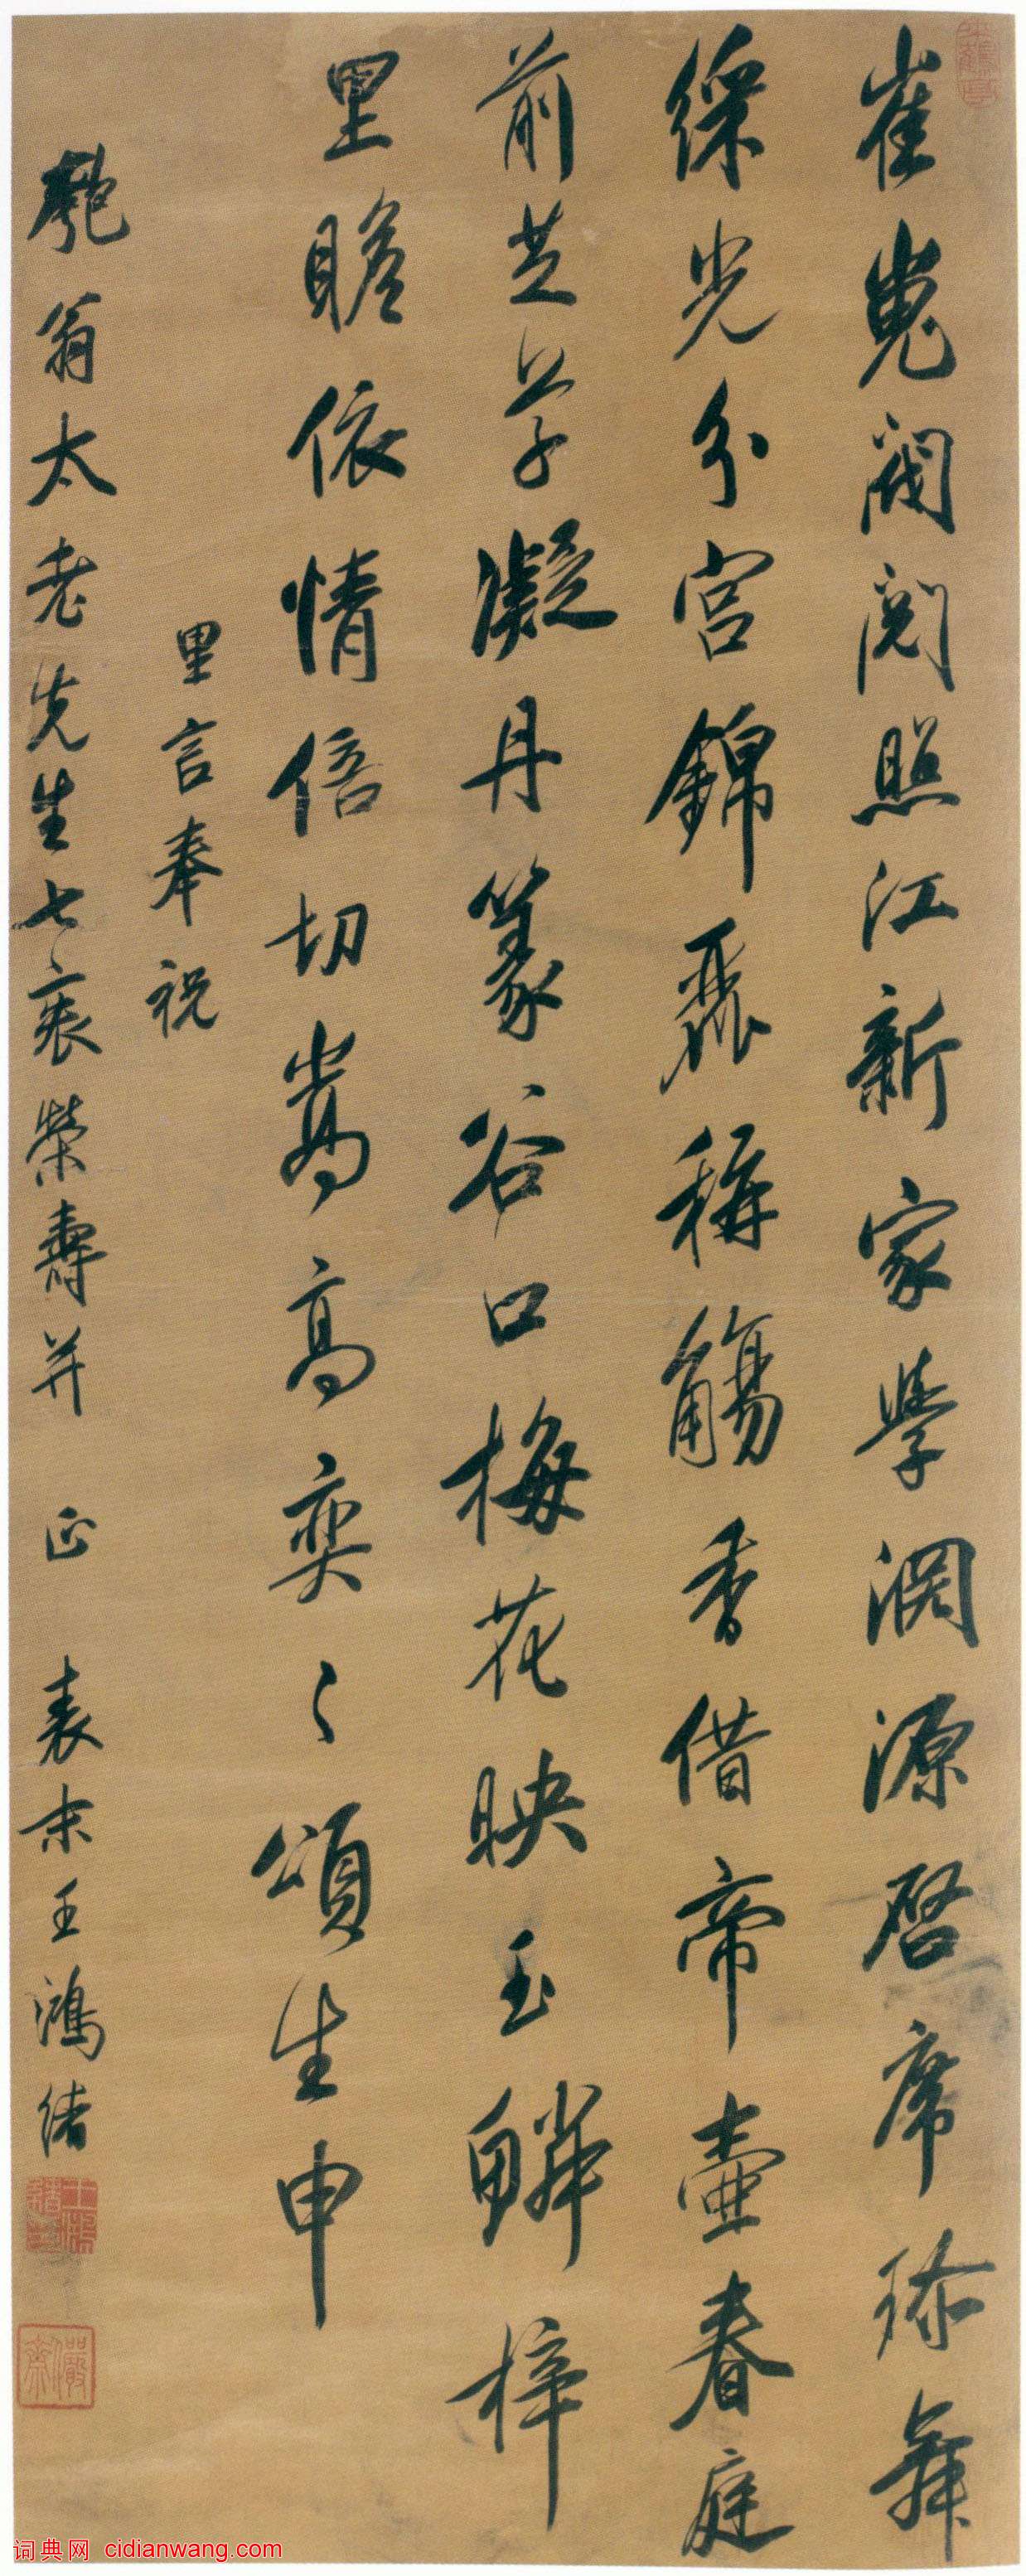 崔嵬閥閱照江新家學淵源啓席珍舞
綵光分宮錦麗稱觴香借帝壺春庭
前芝草凝丹篆谷口梅花映玉鱗梓
里瞻依情倍切嵩高奕〻頌生申
里言奉祝
匏翁太老先生七袠榮壽并 正 表末王鴻緒
王鴻緒印
儼齋
词典网 cidianwang.com